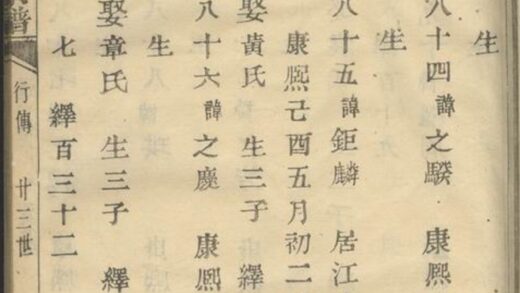 生
八十四諱之騤 康熙
生
八十五諱鉅麟 居江
康熙己酉五月初二
娶黄氏 生三子 繹
八十六諱之慶 康熙
生
娶章氏 生三子 繹
七 繹百三十二
譜
行傳 廿三世